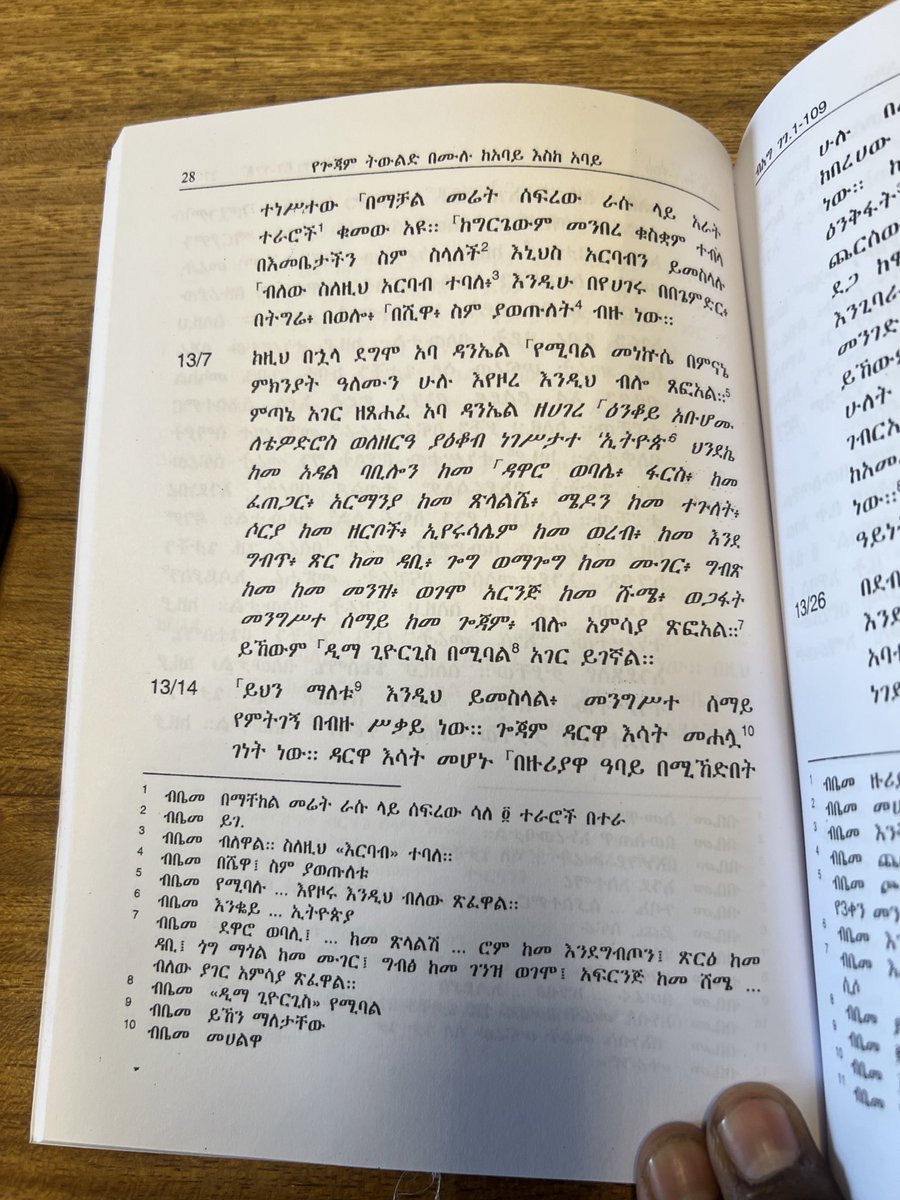 28
የጎጃም ትውልድ በሙሉ ከአባይ እስከ አባይ
ተነሥተው ｢በማቻል መሬት ሰፍረው ራሱ ላይ አራት
ተራሮች¹ ቁመው አዩ። ｢ከግርጌውም መንበረ ቁስቋም ተብላ
በእመቤታችን ስም ስላለች² እኒህስ አርባብን ይመስላሉ
｢ብለው ስለዚህ አርባብ ተባለ፥³ እንዲሁ በየሀገሩ በበጌምድር፥
በትግሬ፥ በወሎ፥ ｢በሺዋ፥ ስም ያወጡለት⁴ ብዙ ነው።
13/7 ከዚህ በኋላ ደግሞ አባ ዳንኤል ｢የሚባል መነኵሴ በምናኔ
ምክንያት ዓለሙን ሁሉ እየዞረ እንዲህ ብሎ ጽፎአል።⁵
ምጣኔ አገር ዘጸሐፈ አባ ዳንኤል ዘሀገረ ｢ዕንቆይ አቡሆሙ
ለቴዎድሮስ ወለዘርዓ ያዕቆብ ነገሥታተ ኢትዮጵ⁶ ህንደኬ
ከመ አዳል ባቢሎን ከመ ｢ዳዋሮ ወባሌ፥ ፋርስ፥ ከመ
ፈጠጋር፥ አርማንያ ከመ ጽላልሼ፥ ሜዶን ከመ ተጉለት፥
ሶርያ ከመ ዘርቦች፥ ኢየሩሳሌም ከመ ወረብ፥ ከመ እንደ
ግብጥ፥ ጽር ከመ ዳቢ፥ ጎግ ወማጎግ ከመ ሙገር፥ ግብጽ
ከመ ከመ መንዝ፥ ወገሞ አርንጅ ከመ ሹሜ፥ ወጋፋት
መንግሥተ ሰማይ ከመ ጎጃም፥ ብሎ አምሳያ ጽፎአል።⁷
ይኸውም ｢ዲማ ጊዮርጊስ በሚባል⁸ አገር ይገኛል።
13/14 ｢ይህን ማለቱ⁹ እንዲህ ይመስላል፥ መንግሥተ ሰማይ
የምትገኝ በብዙ ሥቃይ ነው። ጎጃም ዳርዋ እሳት መሐሏ¹⁰
ገነት ነው። ዳርዋ እሳት መሆኑ ｢በዙሪያዋ ዓባይ በሚኸድበት
1 ብቤመ በማቸከል መሬት ራሱ ላይ ሰፍረው ሳለ ፬ ተራሮች በተራ
2 ብቤመ ይገ.
3 ብቤመ ብለዋል። ስለዚህ «እርባብ» ተባለ።
4 ብቤመ በሸዋ፤ ስም ያወጡለቱ
5 ብቤመ የሚባሉ ... እየዞሩ እንዲህ ብለው ጽፈዋል።
6 ብቤመ እንቈይ ... ኢትዮጵያ
7 ብቤመ ደዋሮ ወባሊ፤ ... ከመ ጽላልሽ ... ሮም ከመ እንደግብጦን፤ ጽርዕ ከመ
ዳቢ፤ ጎግ ማጎል ከመ ሙገር፤ ግብፅ ከመ ገንዝ ወገሞ፤ አፍርንጅ ከመ ሸሜ ...
ብለው ያገር አምሳያ ጽፈዋል።
8 ብቤመ «ዲማ ጊዮርጊስ» የሚባል
9 ብቤመ ይኸን ማለታቸው
10 ብቤመ መሀልዋ
ብእግ ገጋ.1-109
ሁሉ
ከበረሀው
ነው።
ዕንቅፋት
ጨርሰው
ደጋ
መንገድ
ይኸውም
ሁለት
ነው።
13/26 በደብ